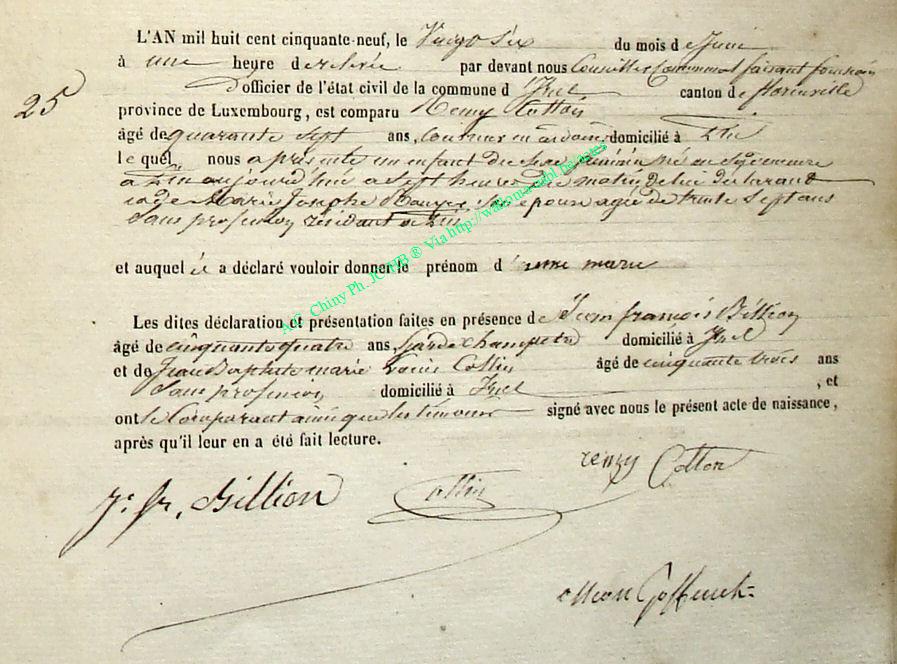 L'AN mil huit cent cinquante-neuf, le Vingt Six du mois de Juin
à une heure de relevée par devant nous Conseiller Communal faisant fonction
25 D'officier de l'état civil de la commune d'Izel canton de florenville
province de Luxembourg, est comparu Remy Cotton
âgé de quarante Sept ans, domicilié à
le quel nous a présenté un enfant du Sexe féminin né
aujourd'hui a Sept heures du matin de lui déclarant
et de Marie Josephe Son épouse agée de trente Sept ans
Sans profession résidant
et auquel il a déclaré vouloir donner le prénom d' marie
Les dites déclaration et présentation faites en présence de Jean françois Billion
âgé de cinquante quatre ans, Garde Champetre domicilié à Izel
et de Jean Baptiste marie Louis Collin âgé de cinquante trois ans
Sans profession domicilié à Izel , et
ont le Comparant ainsi que les témoins signé avec nous le présent acte de naissance,
après qu'il leur en a été fait lecture.
remy Cotton
J. fr. Billion Collin
A.C. Chiny Ph. JCTHB ® Via http://